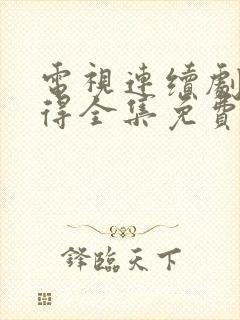 電視連續劇
得全集免費
鋒臨天下